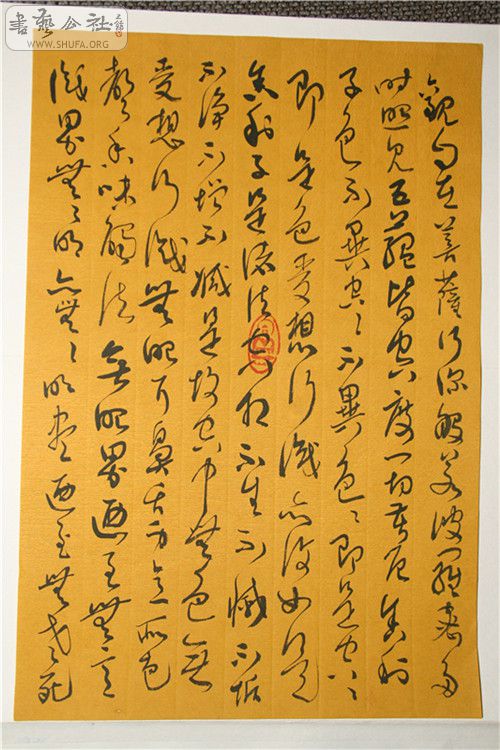 書藝公社
WWW.SHUFA.ORG
觀自在菩薩行深般若波羅蜜多
时照見五蘊皆空度一切苦厄舍利
子色不異空〻不異色〻即是空〻
即是色受想行識亦復如是
舍利子是諸法空相不生不滅不垢
不淨不增不減是故空中無色無
受想行識無眼耳鼻舌身意無色
聲香味觸法無眼界迺至無意
識界無〻明亦無〻明盡迺至無老死